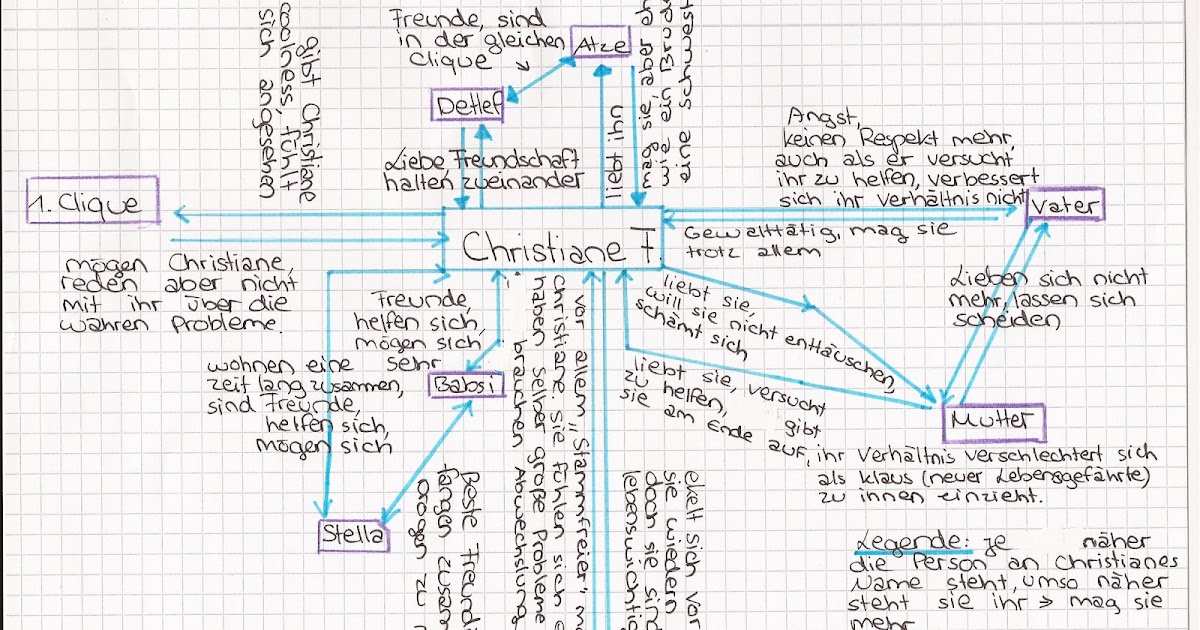 Freunde, sind
in der gleichen
Clique
Atze
Detlef
gibt Christiane
coolness, fühlt
sich angesehen
Liebe, Freundschaft
halten zueinander
liebt ihn
mag sie, aber
wie ein Bru
eine schwest
Angst,
keinen Respekt mehr,
auch als er versucht
ihr zu helfen, verbessert
sich ihr verhältnis nicht
Vater
1. Clique
Christiane F.
Gewalttätig, mag sie
trotz allem
mögen Christiane,
reden aber nicht
mit ihr über die
wahren Probleme.
Freunde,
helfen sich,
mögen sich
Lieben sich nicht
mehr, lassen sich
scheiden
liebt sie,
will sie nicht enttäuschen,
schämt sich
wohnen eine sehr
zeit lang zusammen,
sind Freunde,
helfen sich,
mögen sich
Babsi
liebt sie, versucht
zu helfen, gibt
sie am Ende auf, ihr Verhältnis verschlechtert sich
als Klaus (neuer Lebensgefährte)
zu ihnen einzieht.
Mutter
Stella
Beste Freund
fangen zusam
an zu
vor allem „Stammfreier" m
Christiane. Sie fühlen sich
haben selber große Probleme
brauchen Abwechslung
ekelt sich vor
sie wiedern
doch sie sind
lebenswichtig
Legende: Je näher
die Person an Christianes
Name steht, umso näher
steht sie ihr → mag sie
mehr